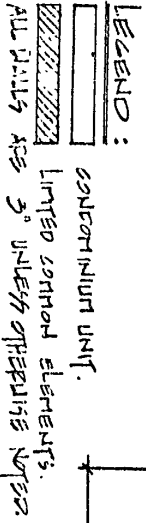 LEGEND:
CONDOMINIUM UNIT.
LIMITED COMMON ELEMENTS.
ALL WALLS ARE 3" UNLESS OTHERWISE NOTED.